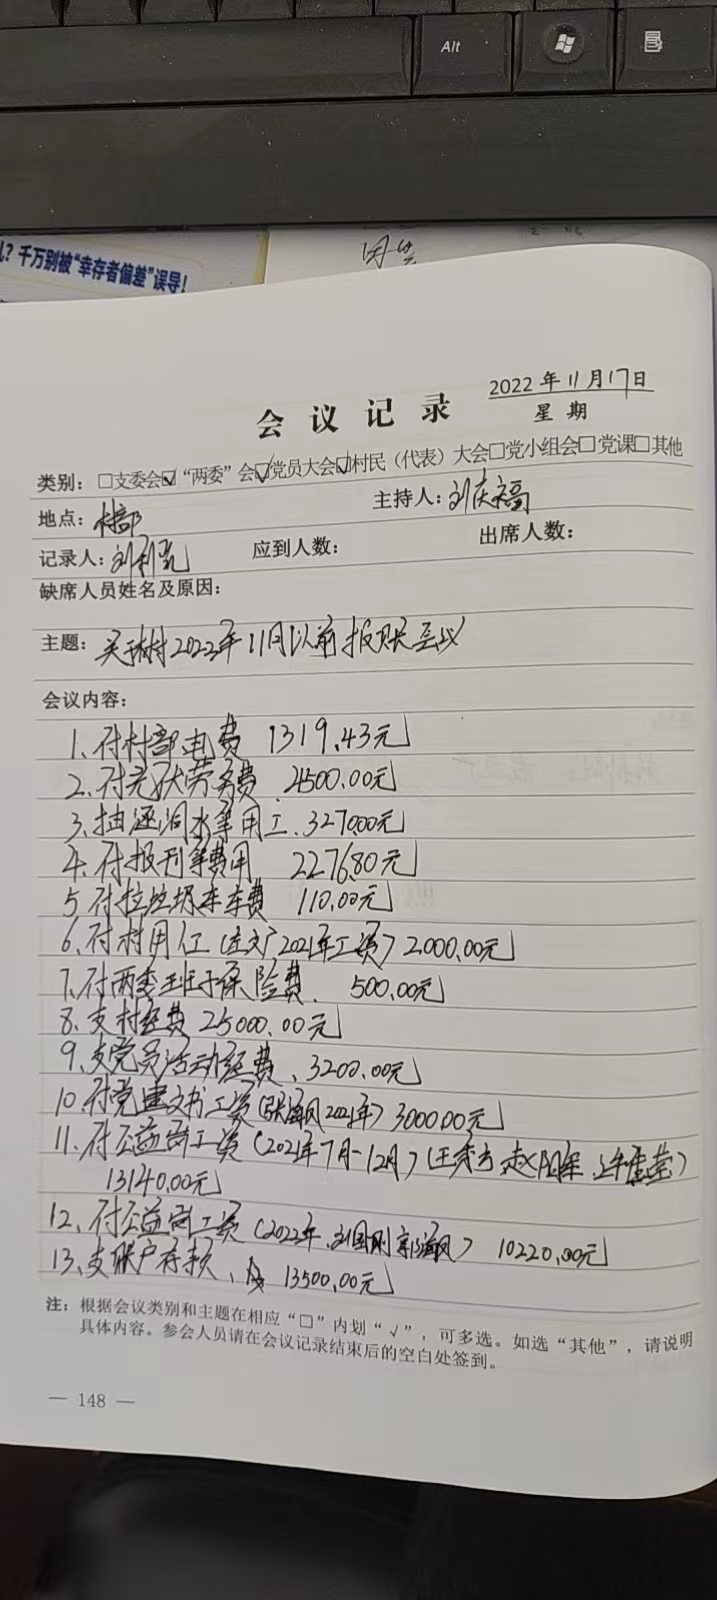 Alt
千万别被“幸存者偏差”误导！
2022年11月17日
会议记录
星期
类别：□支委会☑“两委”会☑党员大会☑村民（代表）大会□党小组会□党课□其他
地点：村部
主持人：刘庆福
记录人：刘利
应到人数：
出席人数：
缺席人员姓名及原因：
主题：村2022年11月以前报账会议
会议内容：
1、付村部电费 1319.43元
2、付劳务费 2500.00元
3、抽涵洞水等用工 3270.00元
4、付报刊等费用 2276.80元
5、付拉垃圾车车费 110.00元
6、付村用工（2021年工资）2000.00元
7、付两委班子保险费 500.00元
8、支村经费 25000.00元
9、支党员活动经费、3200.00元
10、付党建文书工资（张海凤2021年）3000.00元
11、付公益岗工资（2021年7月-12月）（王秀
13140.00元
12、付公益岗工资（2022年、刘国刚 郭海凤） 10220.00元
13、支账户存款、 13500.00元
注：根据会议类别和主题在相应“□”内划“√”，可多选。如选“其他”，请说明
具体内容。参会人员请在会议记录结束后的空白处签到。
— 148 —